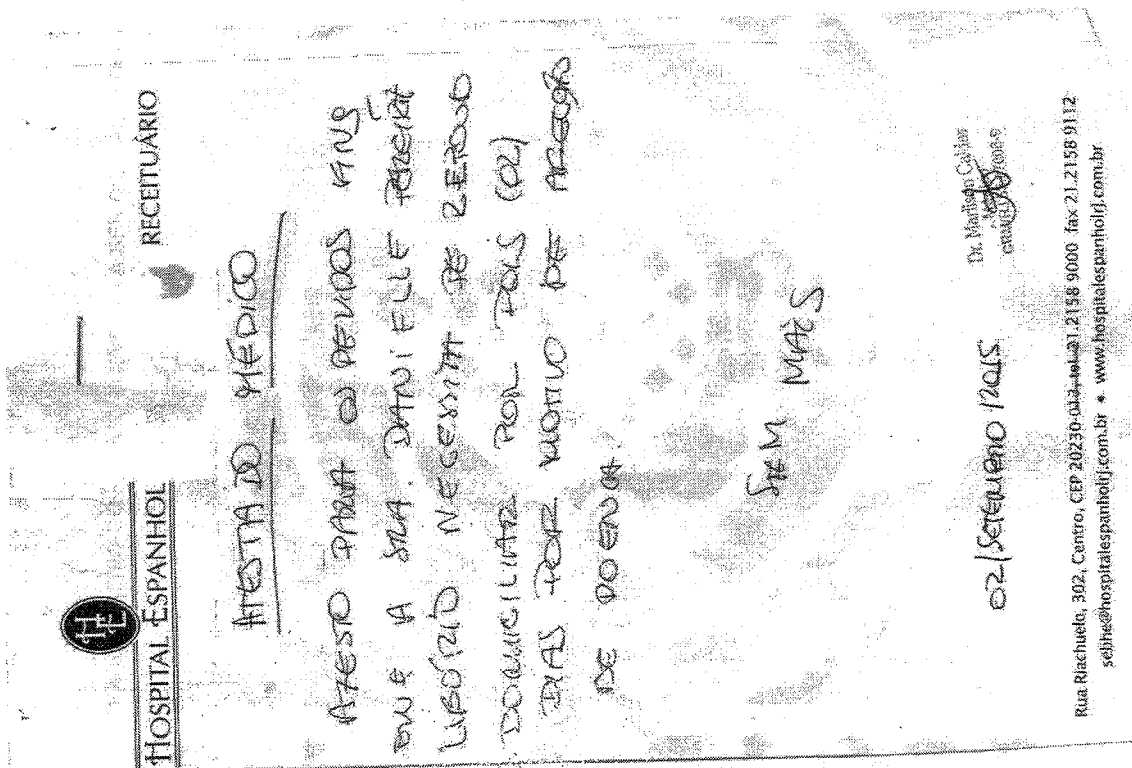 HOSPITAL ESPANHOL
RECEITUÁRIO
ATESTADO MÉDICO
ATESTO PARA OS DEVIDOS FINS
QUE A SRA. DANIELLE
LIBÓRIO NECESSITA DE REPOUSO
DOMICILIAR POR DOIS (02)
DIAS POR MOTIVO DE
DE DOENÇA.
SEM MAIS
02/SETEMBRO/2015
Dr.
Rua Riachuelo, 302, Centro, CEP 20230-013, tel. 21.2158 9000 fax 21.2158 9112
sehhe@hospitalespanholrj.com.br • www.hospitalespanholrj.com.br